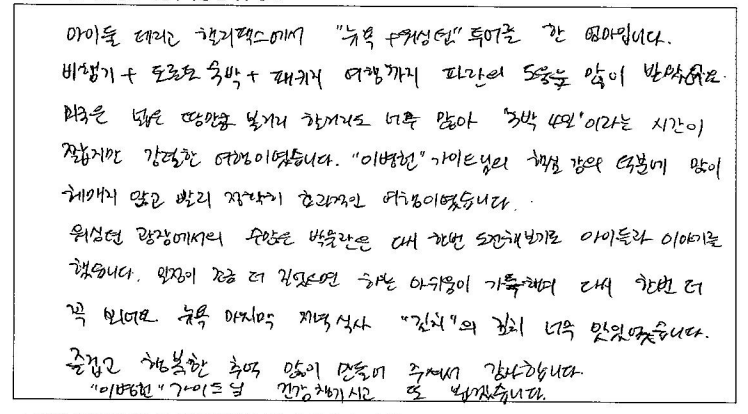 아이들 데리고 핼리팩스에서 "뉴욕+워싱턴" 투어를 한 엄마입니다.
비행기+토론토 숙박+패키지 여행까지 파란의 도움을 많이 받았어요.
미국은 넓은 땅만큼 볼거리 할거리도 너무 많아 "3박 4일"이라는 시간이
짧았지만 강렬한 여행이였습니다. "이병헌" 가이드님의 핵심 강의 덕분에 많이
헤매지 않고 빨리 정확히 효과적인 여행이였습니다.
워싱턴 광장에서의 수많은 박물관은 다시 한번 도전해보기로 아이들과 이야기를
했습니다. 일정이 조금 더 길었으면 하는 아쉬움이 가득해 다시 한번 더
꼭 뉴욕 마지막 저녁식사 "김치"의 김치 너무 맛있었습니다.
즐겁고 행복한 추억 많이 만들어 주셔서 감사합니다.
"이병헌" 가이드님 건강챙기시고 또 뵙겠습니다.